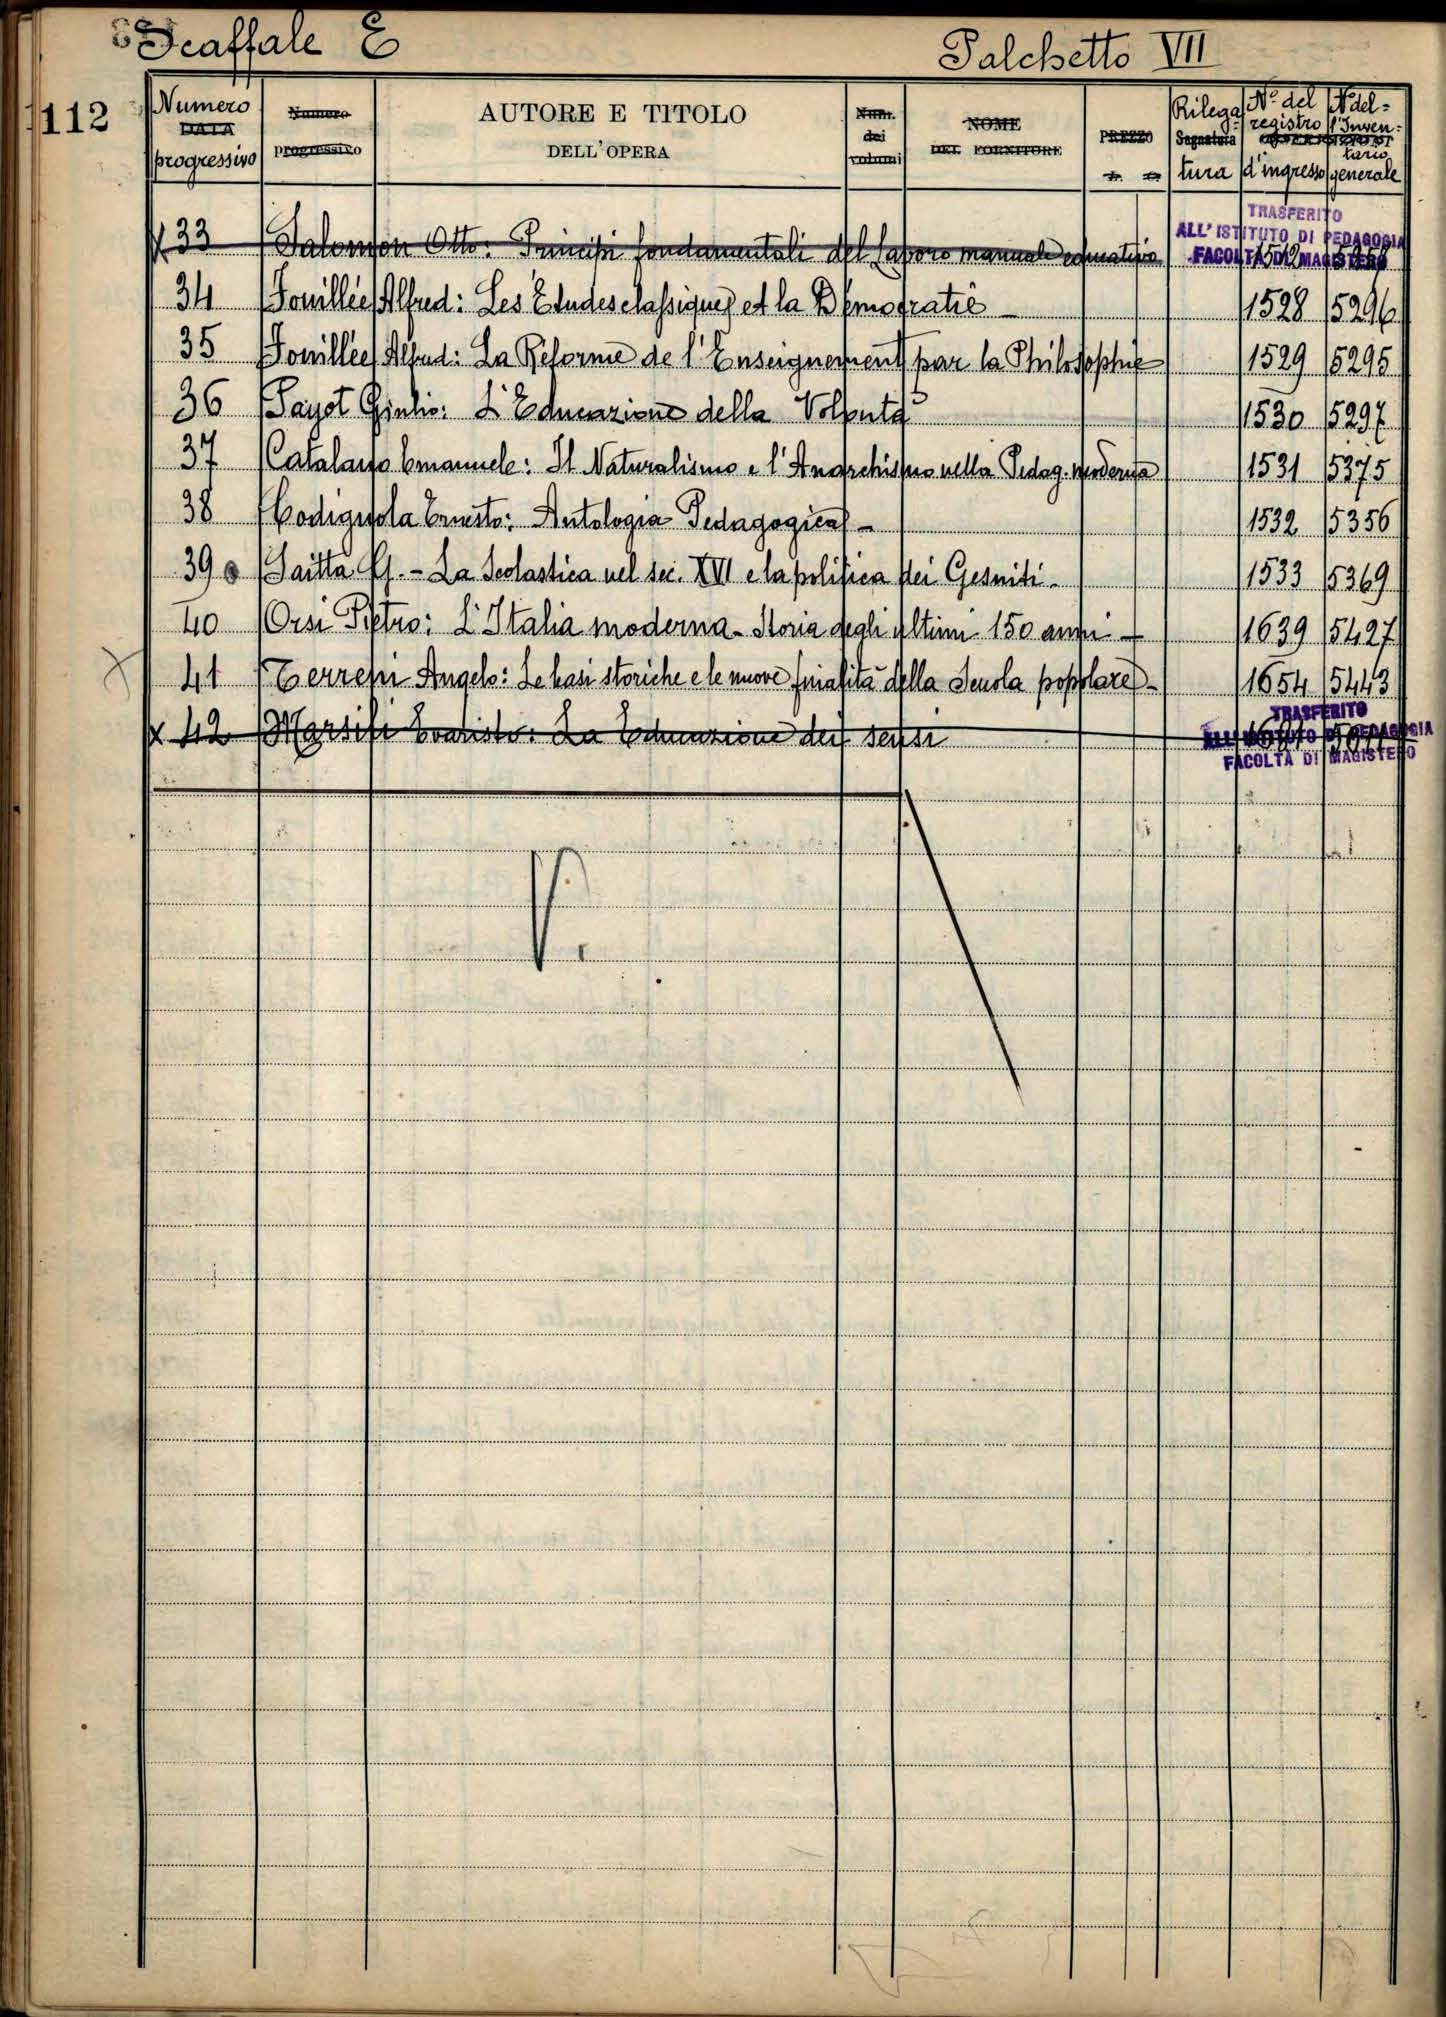 Scaffale E
Palchetto VII
112
Numero DATA progressivo
Numero progressivo
AUTORE E TITOLO DELL'OPERA
Num. dei volumi
NOME DEL FORNITORE
PREZZO
Rilega- Segnatura tura
N.° del registro d'ingresso
N° del- l'Inven- tario generale
TRASFERITO
ALL'ISTITUTO DI PEDAGOGIA
FACOLTÀ DI MAGISTERO
x 33 Salomon Otto: Principi fondamentali del Lavoro manuale educativo 1512
34 Fouillée Alfred: Les Études classiques et la Démocratie - 1528 5296
35 Fouillée Alfred: La Réforme de l'Enseignement par la Philosophie 1529 5295
36 Payot Giulio: L'Educazione della Volontà 1530 5297
37 Catalano Emanuele: Il Naturalismo e l'Anarchismo nella Pedag. moderna 1531 5375
38 Codignola Ernesto: Antologia Pedagogica - 1532 5356
39 Saitta G. - La Scolastica nel sec. XVI e la politica dei Gesuiti - 1533 5369
40 Orsi Pietro: L'Italia moderna - Storia degli ultimi 150 anni - 1639 5427
x 41 Terreni Angelo: Le basi storiche e le nuove finalità della Scuola popolare - 1654 5443
x 42 Marsili Evaristo: La Educazione dei sensi
TRASFERITO
ALL'ISTITUTO DI PEDAGOGIA
FACOLTÀ DI MAGISTERO
V.